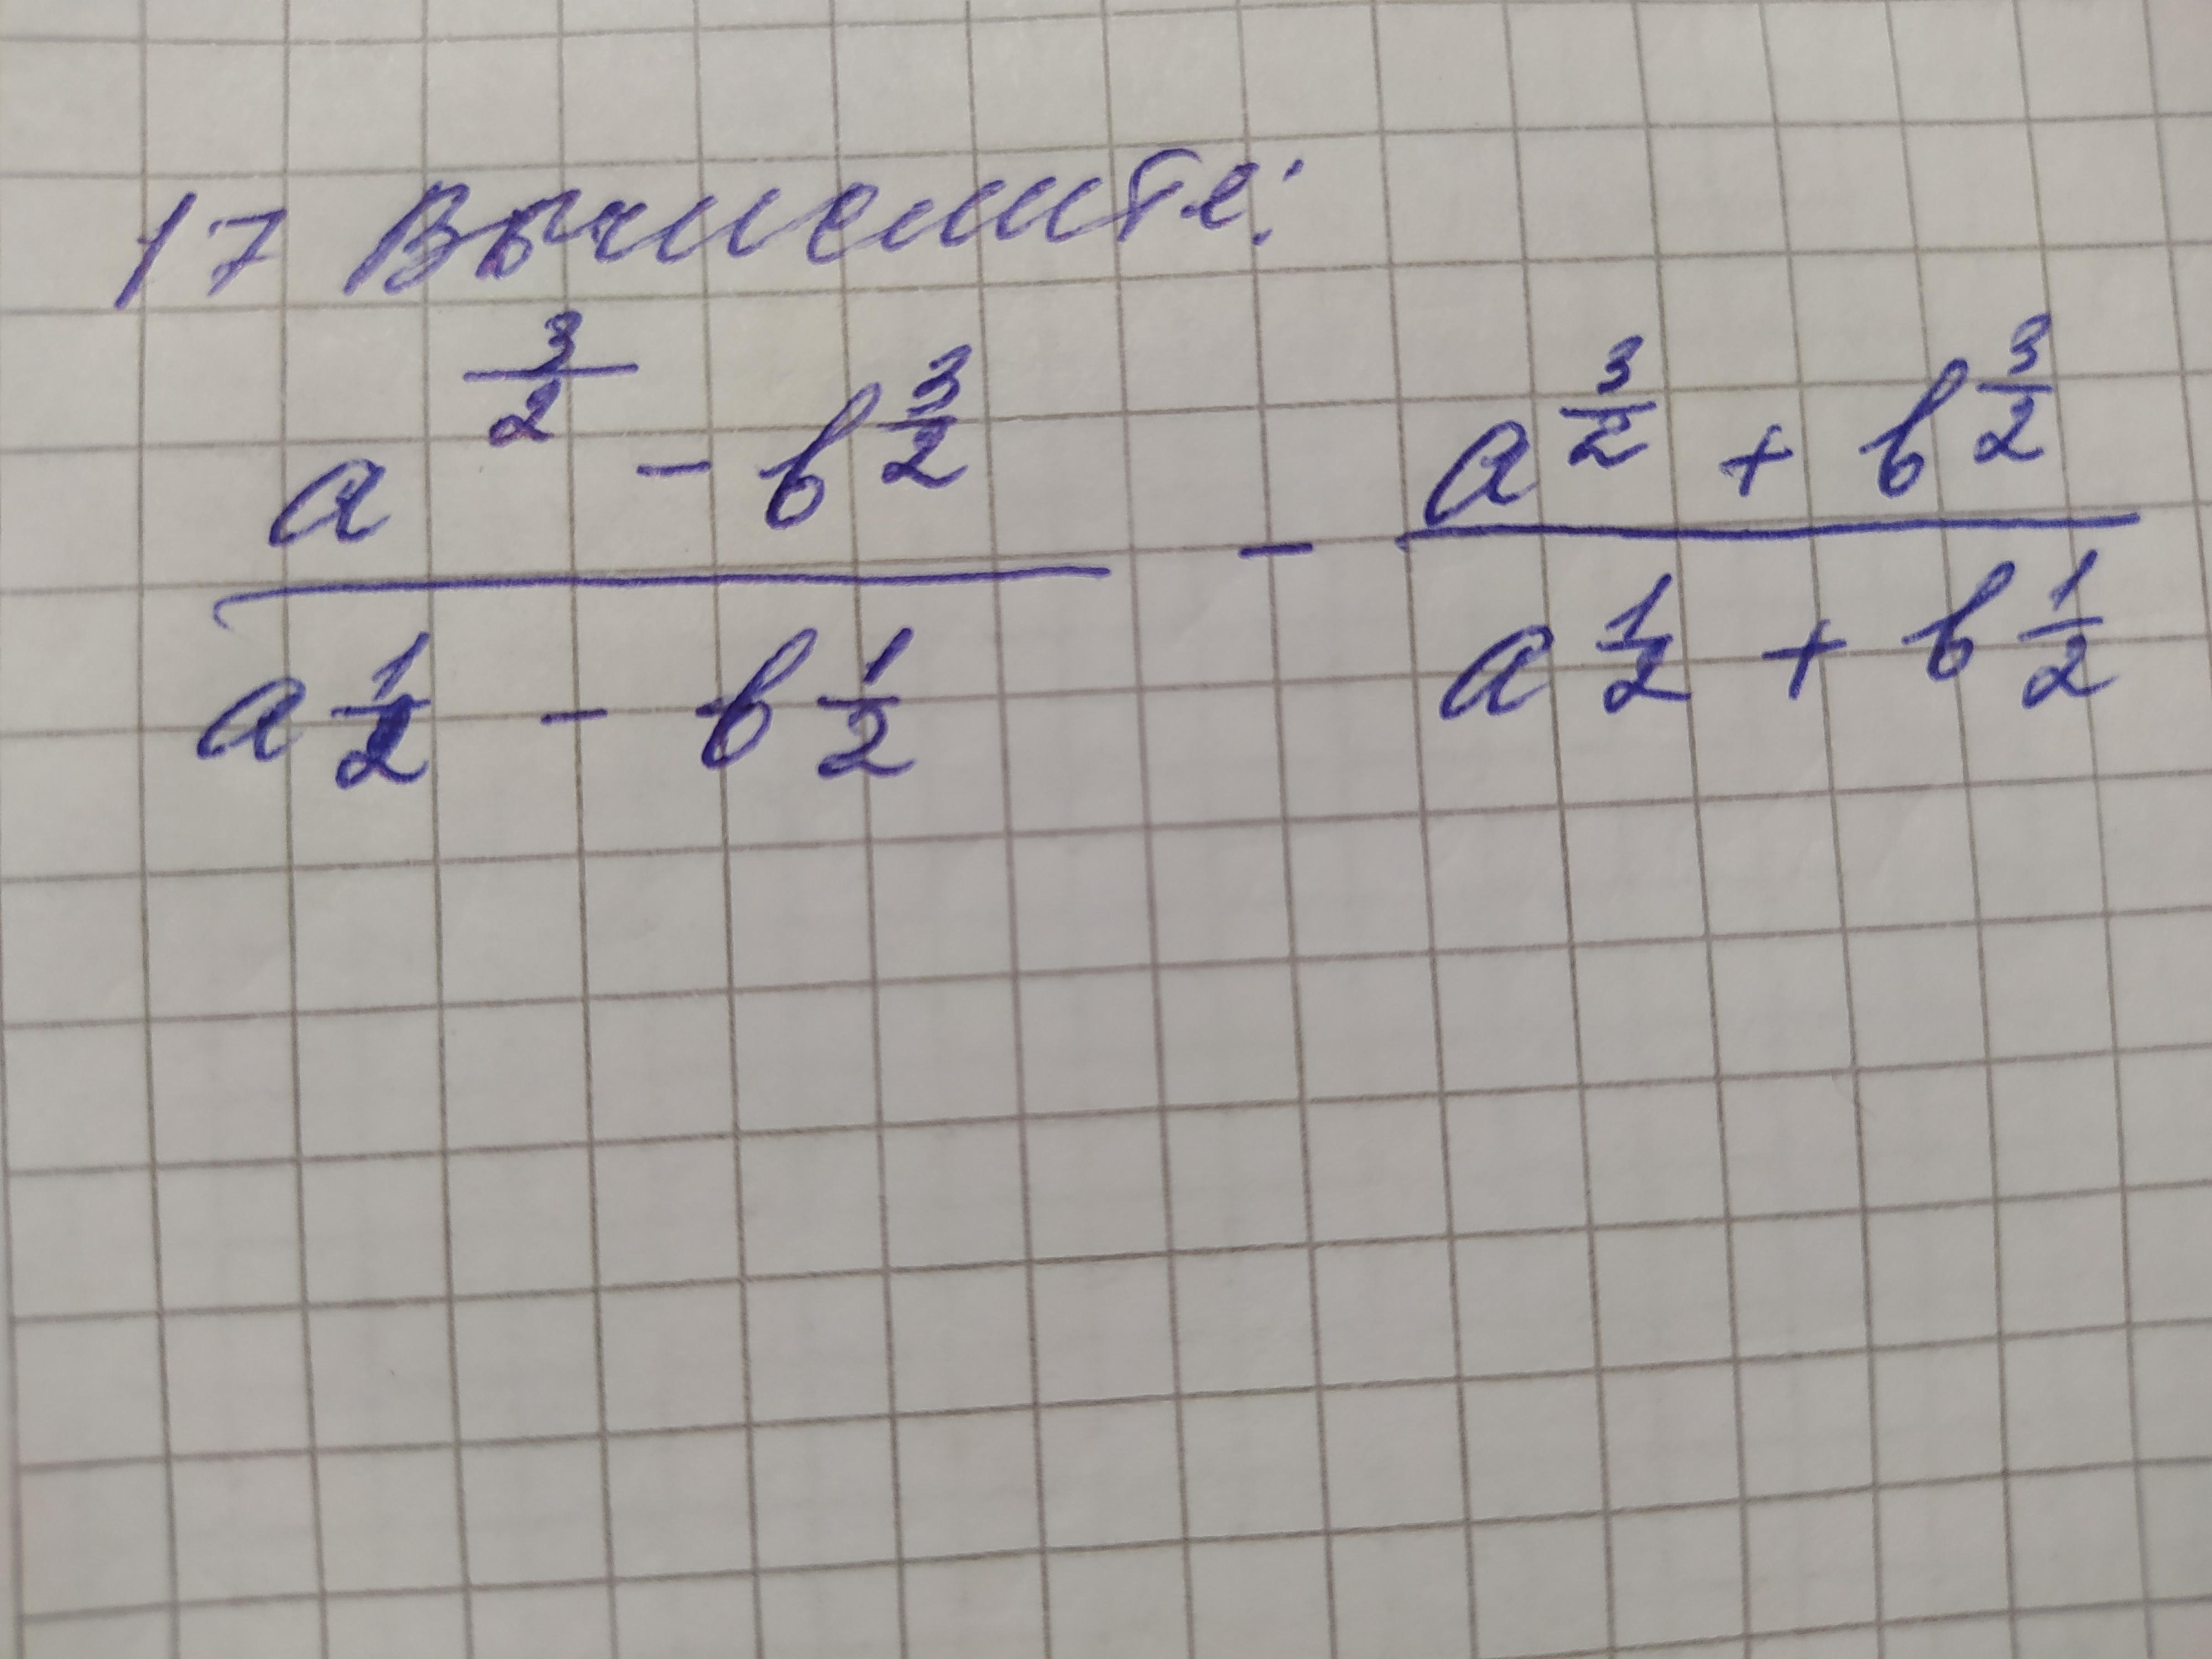 17 Вычислите:
a^{3/2} - b^{3/2} / a^{1/2} - b^{1/2} - a^{3/2} + b^{3/2} / a^{1/2} + b^{1/2}